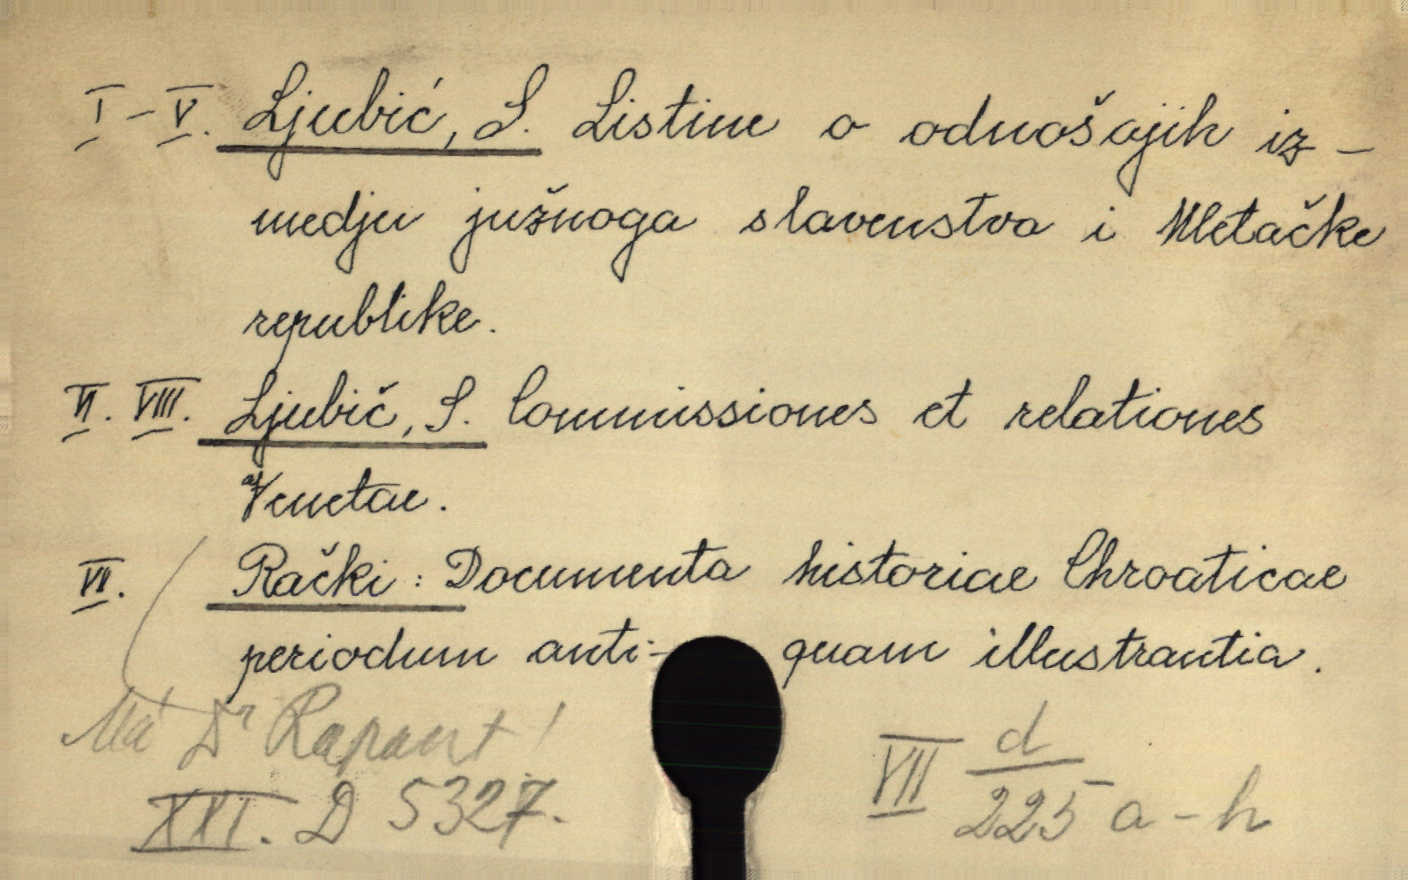 I-V. Ljubić, S. Listine o odnošajih iz-
medju južnoga slavenstva i Mletačke
republike.
VI. VIII. Ljubič, S. Commissiones et relationes
Venetae.
VII. Rački: Documenta historiae Chroaticae
periodum anti- quam illustrantia.
Má Dr Rapant!
XXI. D 5327.
VII d
225 a-h